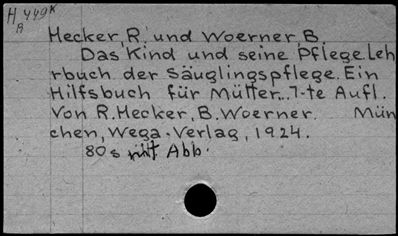 H 449K
R
Hecker, R. und Woerner B.
Das Kind und seine Pflege. Leh
rbuch der Säuglingspflege. Ein
Hilfsbuch für Mütter.. 7-te Aufl.
Von R. Hecker, B. Woerner. Mün
chen, Wega-Verlag, 1924.
80 s mit Abb.